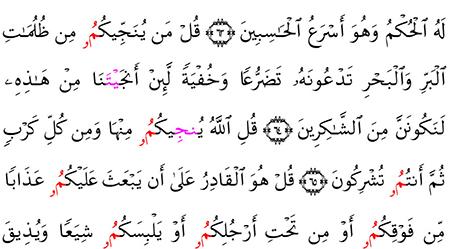 لَهُ اُ۬لْحُكْمُ وَهُوَ أَسْرَعُ اُ۬لْحَٰسِبِينَ ٦٣ قُلْ مَن يُنَجِّيكُمُۥ مِن ظُلُمَٰتِ
اِ۬لْبَرِّ وَالْبَحْرِ تَدْعُونَهُۥ تَضَرُّعًا وَخُفْيَةً لَّئِنْ أَنجَيْتَنَا مِنْ هَٰذِهِۦ
لَنَكُونَنَّ مِنَ اَ۬لشَّٰكِرِينَ ٦٤ قُلِ اِ۬للَّهُ يُنجِيكُمُۥ مِنْهَا وَمِن كُلِّ كَرْبٍ
ثُمَّ أَنتُمُۥ تُشْرِكُونَ ٦٥ قُلْ هُوَ اَ۬لْقَادِرُ عَلَىٰ أَن يَبْعَثَ عَلَيْكُمُۥ عَذَابًا
مِّن فَوْقِكُمُۥ أَوْ مِن تَحْتِ أَرْجُلِكُمُۥ أَوْ يَلْبِسَكُمُۥ شِيَعًا وَيُذِيقَ